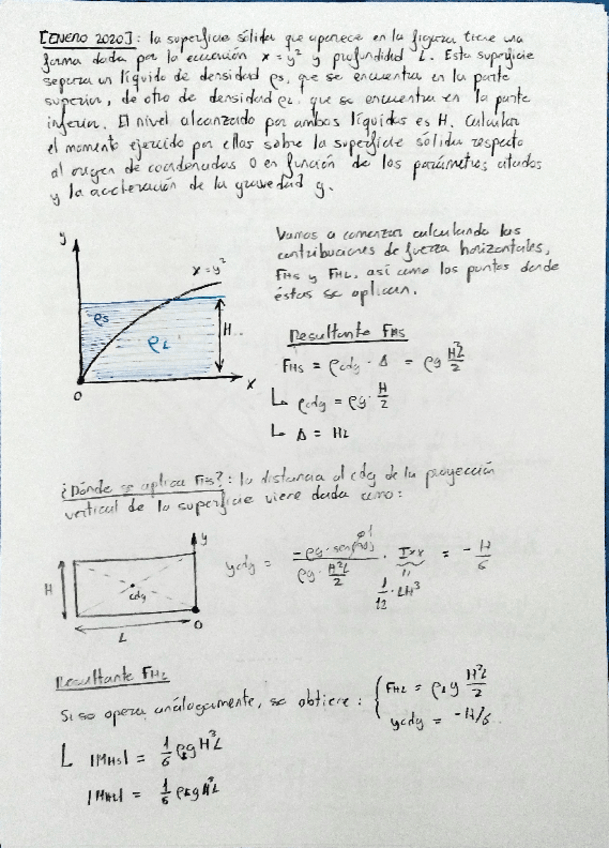 [ENERO 2020]: la superficie sólida que aparece en la figura tiene una
forma dada por la ecuación x = y² y profundidad L. Esta superficie
separa un líquido de densidad ρs, que se encuentra en la parte
superior, de otro de densidad ρL, que se encuentra en la parte
inferior. El nivel alcanzado por ambos líquidos es H. Calcular
el momento ejercido por ellos sobre la superficie sólida respecto
al origen de coordenadas O en función de los parámetros citados
y la aceleración de la gravedad g.
y
x = y²
ρs
ρL
H
x
O
Vamos a comenzar calculando las
contribuciones de fuerza horizontales,
FHS y FHL, así como los puntos donde
éstas se aplican.
Resultante FHS
FHS = ρcdg · A = ρg H²L/2
↳ ρcdg = ρg · H/2
↳ A = HL
¿Dónde se aplica FHS?: la distancia al cdg de la proyección
vertical de la superficie viene dada como:
y
H
cdg
L
O
ycdg = -ρg · sen(90) / ρg · H²L/2 · Ixx = - H/6
1
1/12 · LH³
Resultante FHL
Si se opera análogamente, se obtiene: { FHL = ρL g H²L/2
ycdg = -H/6
|MHS| = 1/6 ρsgH³L
|MHL| = 1/6 ρLgH³L